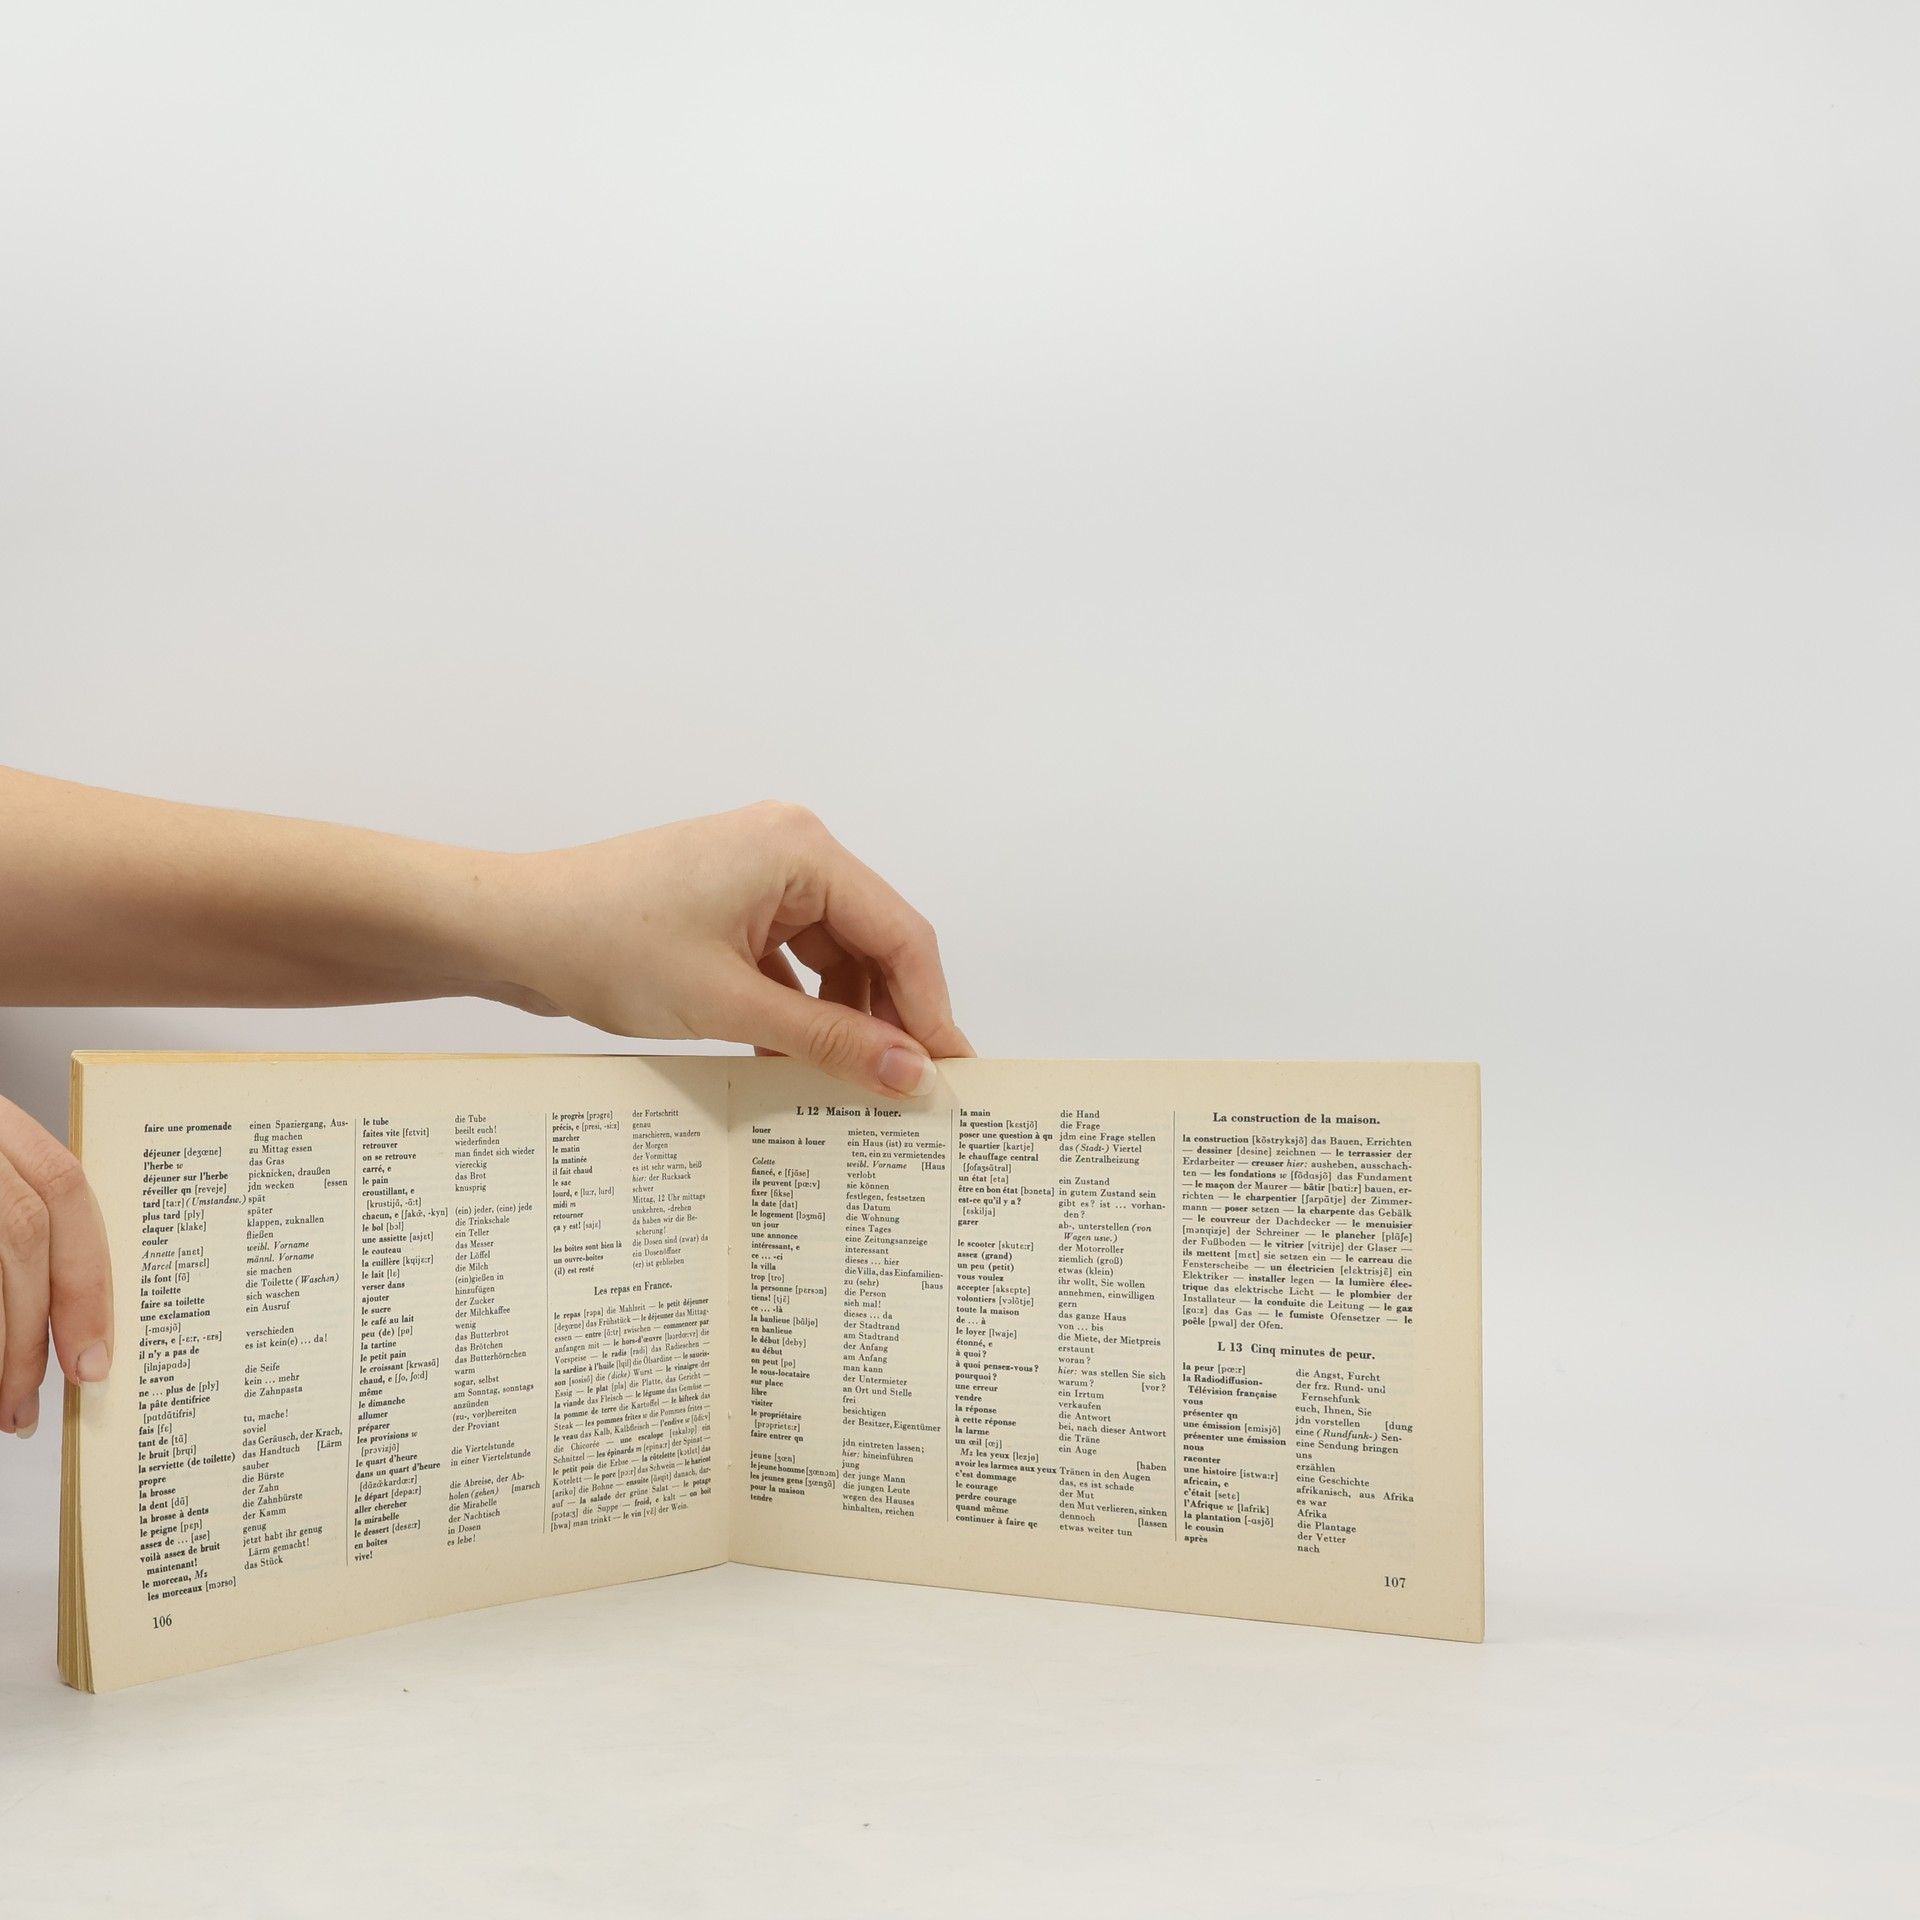 faire une promenade einen Spaziergang, Aus-
flug machen
déjeuner [deʒœne] zu Mittag essen
l'herbe w das Gras
déjeuner sur l'herbe picknicken, draußen
réveiller qn [reveje] jdn wecken [essen
tard [ta:r] (Umstandsw.) spät
plus tard [ply] später
claquer [klake] klappen, zuknallen
couler fließen
Annette [anɛt] weibl. Vorname
Marcel [marsɛl] männl. Vorname
ils font [fɔ̃] sie machen
la toilette die Toilette (Waschtn)
faire sa toilette sich waschen
une exclamation ein Ausruf
[-mɑsjɔ̃]
divers, e [-ɛ:r, -ɛrs] verschieden
il n'y a pas de es ist kein(e) ... da!
[ilnjapɑdə]
le savon die Seife
ne ... plus de [ply] kein ... mehr
la pâte dentifrice die Zahnpasta
[pɑtdɑ̃tifris]
fais [fɛ] tu, mache!
tant de [tɑ̃] soviel
le bruit [brɥi] das Geräusch, der Krach,
la serviette (de toilette) das Handtuch [Lärm
propre sauber
la brosse die Bürste
la dent [dɑ̃] der Zahn
la brosse à dents die Zahnbürste
le peigne [pɛɲ] der Kamm
assez de ... [ase] genug
voilà assez de bruit jetzt habt ihr genug
maintenant! Lärm gemacht!
le morceau, Mz das Stück
les morceaux [mɔrso]
106
le tube die Tube
faites vite [fɛtvit] beeilt euch!
retrouver wiederfinden
on se retrouve man findet sich wieder
carré, e viereckig
le pain das Brot
croustillant, e knusprig
[krustijɑ̃, -ɑ̃:t]
chacun, e [ʃakœ̃, -kyn] (ein) jeder, (eine) jede
le bol [bɔl] die Trinkschale
une assiette [asjɛt] ein Teller
le couteau das Messer
la cuillère [kɥijɛ:r] der Löffel
le lait [lɛ] die Milch
verser dans (ein)gießen in
ajouter hinzufügen
le sucre der Zucker
le café au lait der Milchkaffee
peu (de) [pø] wenig
la tartine das Butterbrot
le petit pain das Brötchen
le croissant [krwasɑ̃] das Butterhörnchen
chaud, e [ʃo, ʃo:d] warm
même sogar, selbst
le dimanche am Sonntag, sonntags
allumer anzünden
préparer (zu-, vor)bereiten
les provisions w der Proviant
[prɔvizjɔ̃]
le quart d'heure die Viertelstunde
dans un quart d'heure in einer Viertelstunde
[dɑ̃zœ̃kardœ:r]
le départ [depa:r] die Abreise, der Ab-
aller chercher holen (gehen) [marsch
la mirabelle die Mirabelle
le dessert [desɛ:r] der Nachtisch
en boîtes in Dosen
vive! es lebe!
le progrès [prɔgrɛ] der Fortschritt
précis, e [presi, -si:z] genau
marcher marschieren, wandern
le matin der Morgen
la matinée der Vormittag
il fait chaud es ist sehr warm, heiß
le sac hier: der Rucksack
lourd, e [lu:r, lurd] schwer
midi m Mittag, 12 Uhr mittags
retourner umkehren, -drehen
ça y est! [sajɛ] da haben wir die Be-
scherung!
les boîtes sont bien là die Dosen sind (zwar) da
un ouvre-boîtes ein Dosenöffner
(il) est resté (er) ist geblieben
Les repas en France.
le repas [rəpa] die Mahlzeit — le petit déjeuner
[deʒœne] das Frühstück — le déjeuner das Mittag-
essen — entre [ɑ̃:tr] zwischen — commencer par
anfangen mit — le hors-d'œuvre [lɔɔrdœ:vr] die
Vorspeise — le radis [radi] das Radieschen —
la sardine à l'huile [lɥil] die Ölsardine — le saucis-
son [sosisɔ̃] die (dicke) Wurst — le vinaigre der
Essig — le plat [pla] die Platte, das Gericht —
la viande das Fleisch — le légume das Gemüse —
la pomme de terre die Kartoffel — le bifteck das
Steak — les pommes frites w die Pommes frites —
le veau das Kalb, Kalbfleisch — l'endive w [ɑ̃di:v]
die Chicorée — une escalope [ɛskalɔp] ein
Schnitzel — les épinards m [epina:r] der Spinat —
le petit pois die Erbse — la côtelette [kɔtlɛt] das
Kotelett — le porc [pɔ:r] das Schwein — le haricot
[ariko] die Bohne — ensuite [ɑ̃sɥit] danach, dar-
auf — la salade der grüne Salat — le potage
[pɔta:ʒ] die Suppe — froid, e kalt — on boit
[bwa] man trinkt — le vin [vɛ̃] der Wein.
L 12 Maison à louer.
louer mieten, vermieten
une maison à louer ein Haus (ist) zu vermie-
ten, ein zu vermietendes
Colette weibl. Vorname [Haus
fiancé, e [fjɑ̃se] verlobt
ils peuvent [pœ:v] sie können
fixer [fikse] festlegen, festsetzen
la date [dat] das Datum
le logement [lɔʒmɑ̃] die Wohnung
un jour eines Tages
une annonce eine Zeitungsanzeige
intéressant, e interessant
ce ... -ci dieses ... hier
la villa die Villa, das Einfamilien-
trop [tro] zu (sehr) [haus
la personne [pɛrsɔn] die Person
tiens! [tjɛ̃] sieh mal!
ce ... -là dieses ... da
la banlieue [bɑ̃ljø] der Stadtrand
en banlieue am Stadtrand
le début [deby] der Anfang
au début am Anfang
on peut [pø] man kann
le sous-locataire der Untermieter
sur place an Ort und Stelle
libre frei
visiter besichtigen
le propriétaire der Besitzer, Eigentümer
[prɔprietɛ:r]
faire entrer qn jdn eintreten lassen;
hier: hineinführen
jeune [ʒœn] jung
le jeune homme [ʒœnɔm] der junge Mann
les jeunes gens [ʒœnʒɑ̃] die jungen Leute
pour la maison wegen des Hauses
tendre hinhalten, reichen
la main die Hand
la question [kɛstjɔ̃] die Frage
poser une question à qn jdm eine Frage stellen
le quartier [kartje] das (Stadt-) Viertel
le chauffage central die Zentralheizung
[ʃofaʒsɑ̃tral]
un état [eta] ein Zustand
être en bon état [bɔneta] in gutem Zustand sein
est-ce qu'il y a? gibt es? ist ... vorhan-
[ɛskilja] den?
garer ab-, unterstellen (von
Wagen usw.)
le scooter [skutɛ:r] der Motorroller
assez (grand) ziemlich (groß)
un peu (petit) etwas (klein)
vous voulez ihr wollt, Sie wollen
accepter [aksɛpte] annehmen, einwilligen
volontiers [vɔlɔ̃tje] gern
toute la maison das ganze Haus
de ... à von ... bis
le loyer [lwaje] die Miete, der Mietpreis
étonné, e erstaunt
à quoi? woran?
à quoi pensez-vous? hier: was stellen Sie sich
pourquoi? warum? [vor?
une erreur ein Irrtum
vendre verkaufen
la réponse die Antwort
à cette réponse bei, nach dieser Antwort
la larme die Träne
un œil [œj] ein Auge
Mz les yeux [lezjø] [haben
avoir les larmes aux yeux Tränen in den Augen
c'est dommage das, es ist schade
le courage der Mut
perdre courage den Mut verlieren, sinken
quand même dennoch [lassen
continuer à faire qc etwas weiter tun
La construction de la maison.
la construction [kɔ̃stryksjɔ̃] das Bauen, Errichten
— dessiner [desine] zeichnen — le terrassier der
Erdarbeiter — creuser hier: ausheben, ausschach-
ten — les fondations w [fɔ̃dɑsjɔ̃] das Fundament
— le maçon der Maurer — bâtir [bɑti:r] bauen, er-
richten — le charpentier [ʃarpɑ̃tje] der Zimmer-
mann — poser setzen — la charpente das Gebälk
— le couvreur der Dachdecker — le menuisier
[mənɥizje] der Schreiner — le plancher [plɑ̃ʃe]
der Fußboden — le vitrier [vitrije] der Glaser —
ils mettent [mɛt] sie setzen ein — le carreau die
Fensterscheibe — un électricien [elɛktrisjɛ̃] ein
Elektriker — installer legen — la lumière élec-
trique das elektrische Licht — le plombier der
Installateur — la conduite die Leitung — le gaz
[gɑ:z] das Gas — le fumiste Ofensetzer — le
poêle [pwal] der Ofen.
L 13 Cinq minutes de peur.
la peur [pœ:r] die Angst, Furcht
la Radiodiffusion- der frz. Rund- und
Télévision française Fernsehfunk
vous euch, Ihnen, Sie
présenter qn jdn vorstellen [dung
une émission [emisjɔ̃] eine (Rundfunk-) Sen-
présenter une émission eine Sendung bringen
nous uns
raconter erzählen
une histoire [istwa:r] eine Geschichte
africain, e afrikanisch, aus Afrika
c'était [setɛ] es war
l'Afrique w [lafrik] Afrika
la plantation [-ɑsjɔ̃] die Plantage
le cousin der Vetter
après nach
107